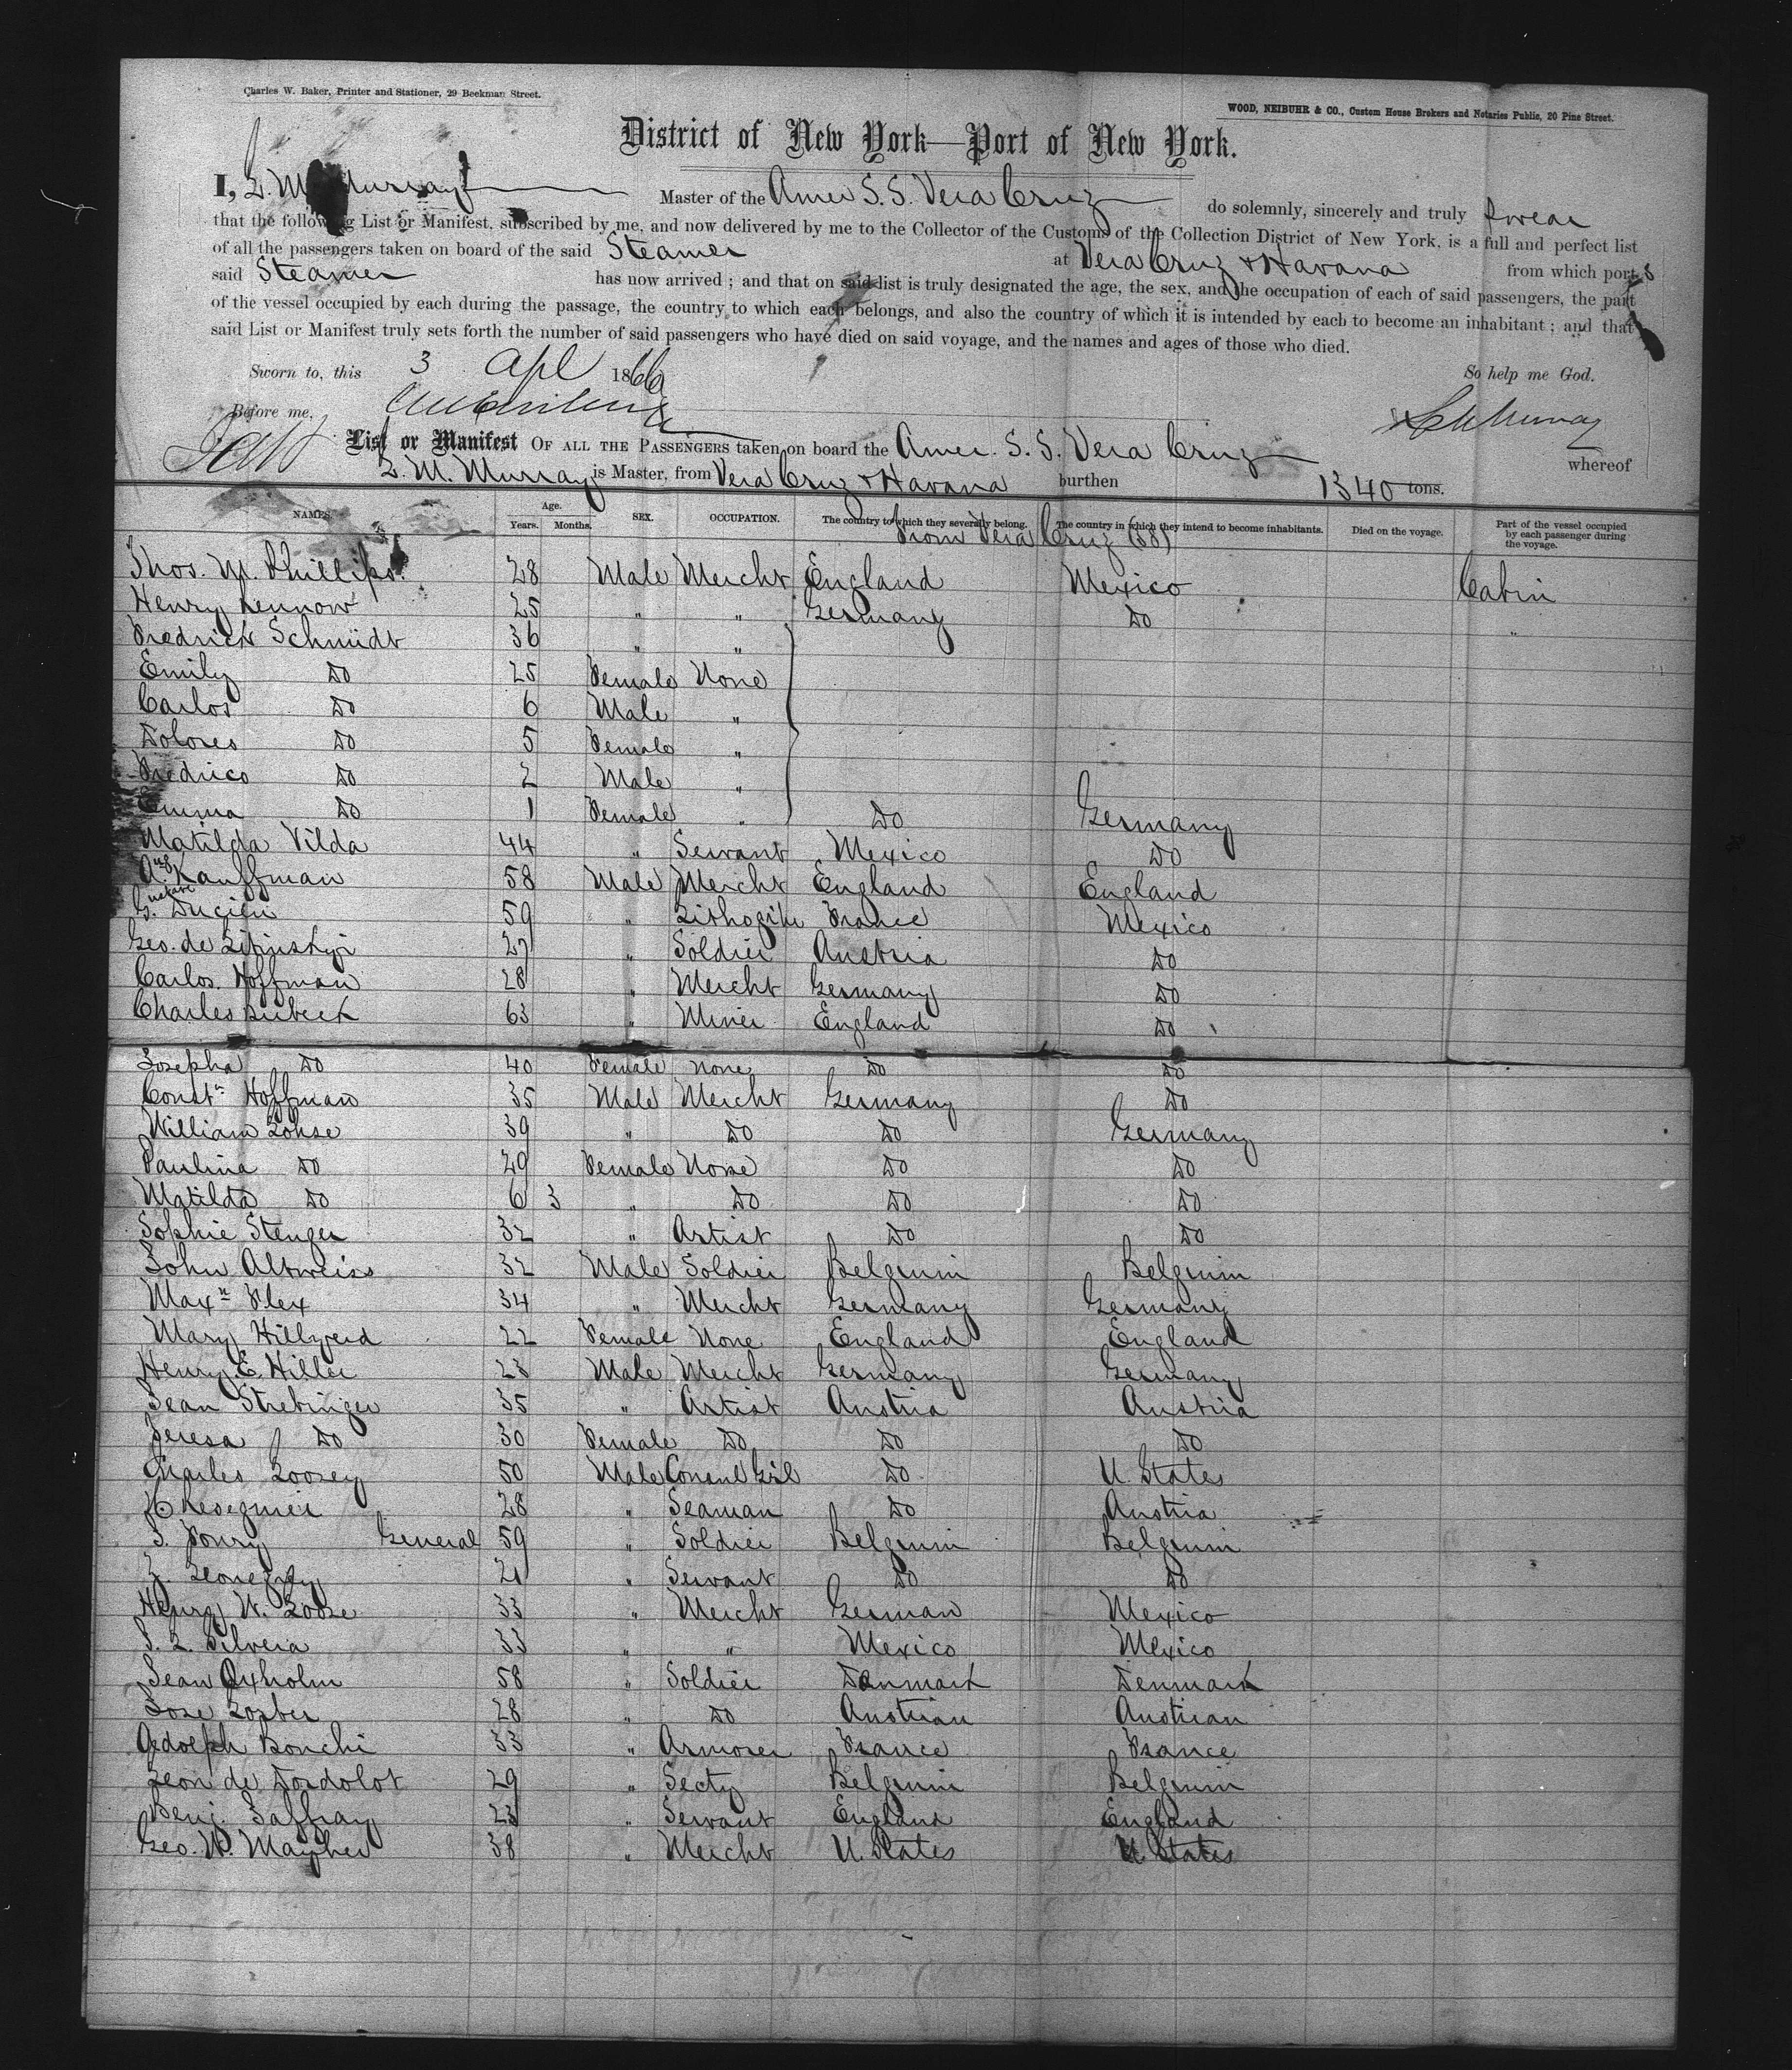 Charles W. Baker, Printer and Stationer, 29 Beekman Street.
WOOD, NEIBUHR & CO., Custom House Brokers and Notaries Public, 20 Pine Street.
District of New York—Port of New York.
I, L. M. Murray Master of the Amer S. S. Vera Cruz do solemnly, sincerely and truly swear
that the following List or Manifest, subscribed by me, and now delivered by me to the Collector of the Customs of the Collection District of New York, is a full and perfect list
of all the passengers taken on board of the said Steamer at Vera Cruz & Havana from which ports
said Steamer has now arrived ; and that on said list is truly designated the age, the sex, and the occupation of each of said passengers, the part
of the vessel occupied by each during the passage, the country to which each belongs, and also the country of which it is intended by each to become an inhabitant ; and that
said List or Manifest truly sets forth the number of said passengers who have died on said voyage, and the names and ages of those who died.
Sworn to, this 3 Apl 1866 So help me God.
Before me, L M Murray
List or Manifest OF ALL THE PASSENGERS taken on board the Amer. S. S. Vera Cruz whereof
L. M. Murray is Master, from Vera Cruz & Havana burthen 1340 tons.
NAMES. Age. Years. Months. SEX. OCCUPATION. The country to which they severally belong. The country in which they intend to become inhabitants. Died on the voyage. Part of the vessel occupied by each passenger during the voyage.
From Vera Cruz (38)
Thos. M. Phillips. 28 Male Mercht England Mexico Cabin
Henry Lennow 25 " " Germany Do "
Fredrick Schmidt 36 " "
Emily Do 25 Female None
Carlos Do 6 Male "
Dolores Do 5 Female "
Fredrico Do 2 Male "
Emma Do 1 Female " Do Germany
Matilda Vilda 44 " Servant Mexico Do
Aug Kauffman 58 Male Mercht England England
G. 59 " France Mexico
Geo. de 27 " Soldier Austria Do
Carlos Hoffman 28 " Mercht Germany Do
Charles Lubeck 63 " Miner England Do
Josepha Do 40 Female None Do Do
Constn Hoffman 35 Male Mercht Germany Do
William Lohse 39 " Do Do Germany
Paulina Do 29 Female None Do Do
Matilda Do 6 3 " Do Do Do
Sophie Stenger 32 " Artist Do Do
John Altweiss 32 Male Soldier Belgium Belgium
Maxn Flex 34 " Mercht Germany Germany
Mary Hillyerd 22 Female None England England
Henry E. Hiller 23 Male Mercht Germany Germany
Jean Strebinger 35 " Artist Austria Austria
Teresa Do 30 Female Do Do Do
Charles Loosey 50 Male Consul Gnl Do U. States
28 " Seaman Do Austria
J. Foury General 59 " Soldier Belgium Belgium
21 " Servant Do Do
Henry W. Loose 33 " Mercht German Mexico
S. L. Silveia 33 " " Mexico Mexico
Jean Oxholm 58 " Soldier Denmark Denmark
Jose 28 " Do Austrian Austrian
Adolph Bonchi 33 " Armorer France France
Leon de Dordolot 29 " Secty Belgium Belgium
Benj. Saffray 23 " Servant England England
Geo. W. Mayher 38 " Mercht U. States U. States